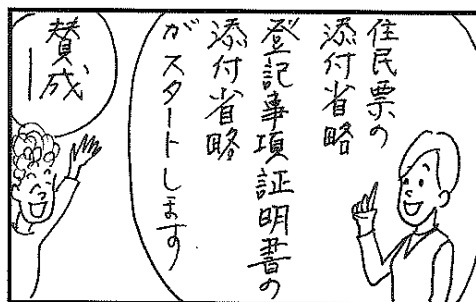 住民票の
添付省略
登記事項証明書の
添付省略
がスタートします
賛成ー